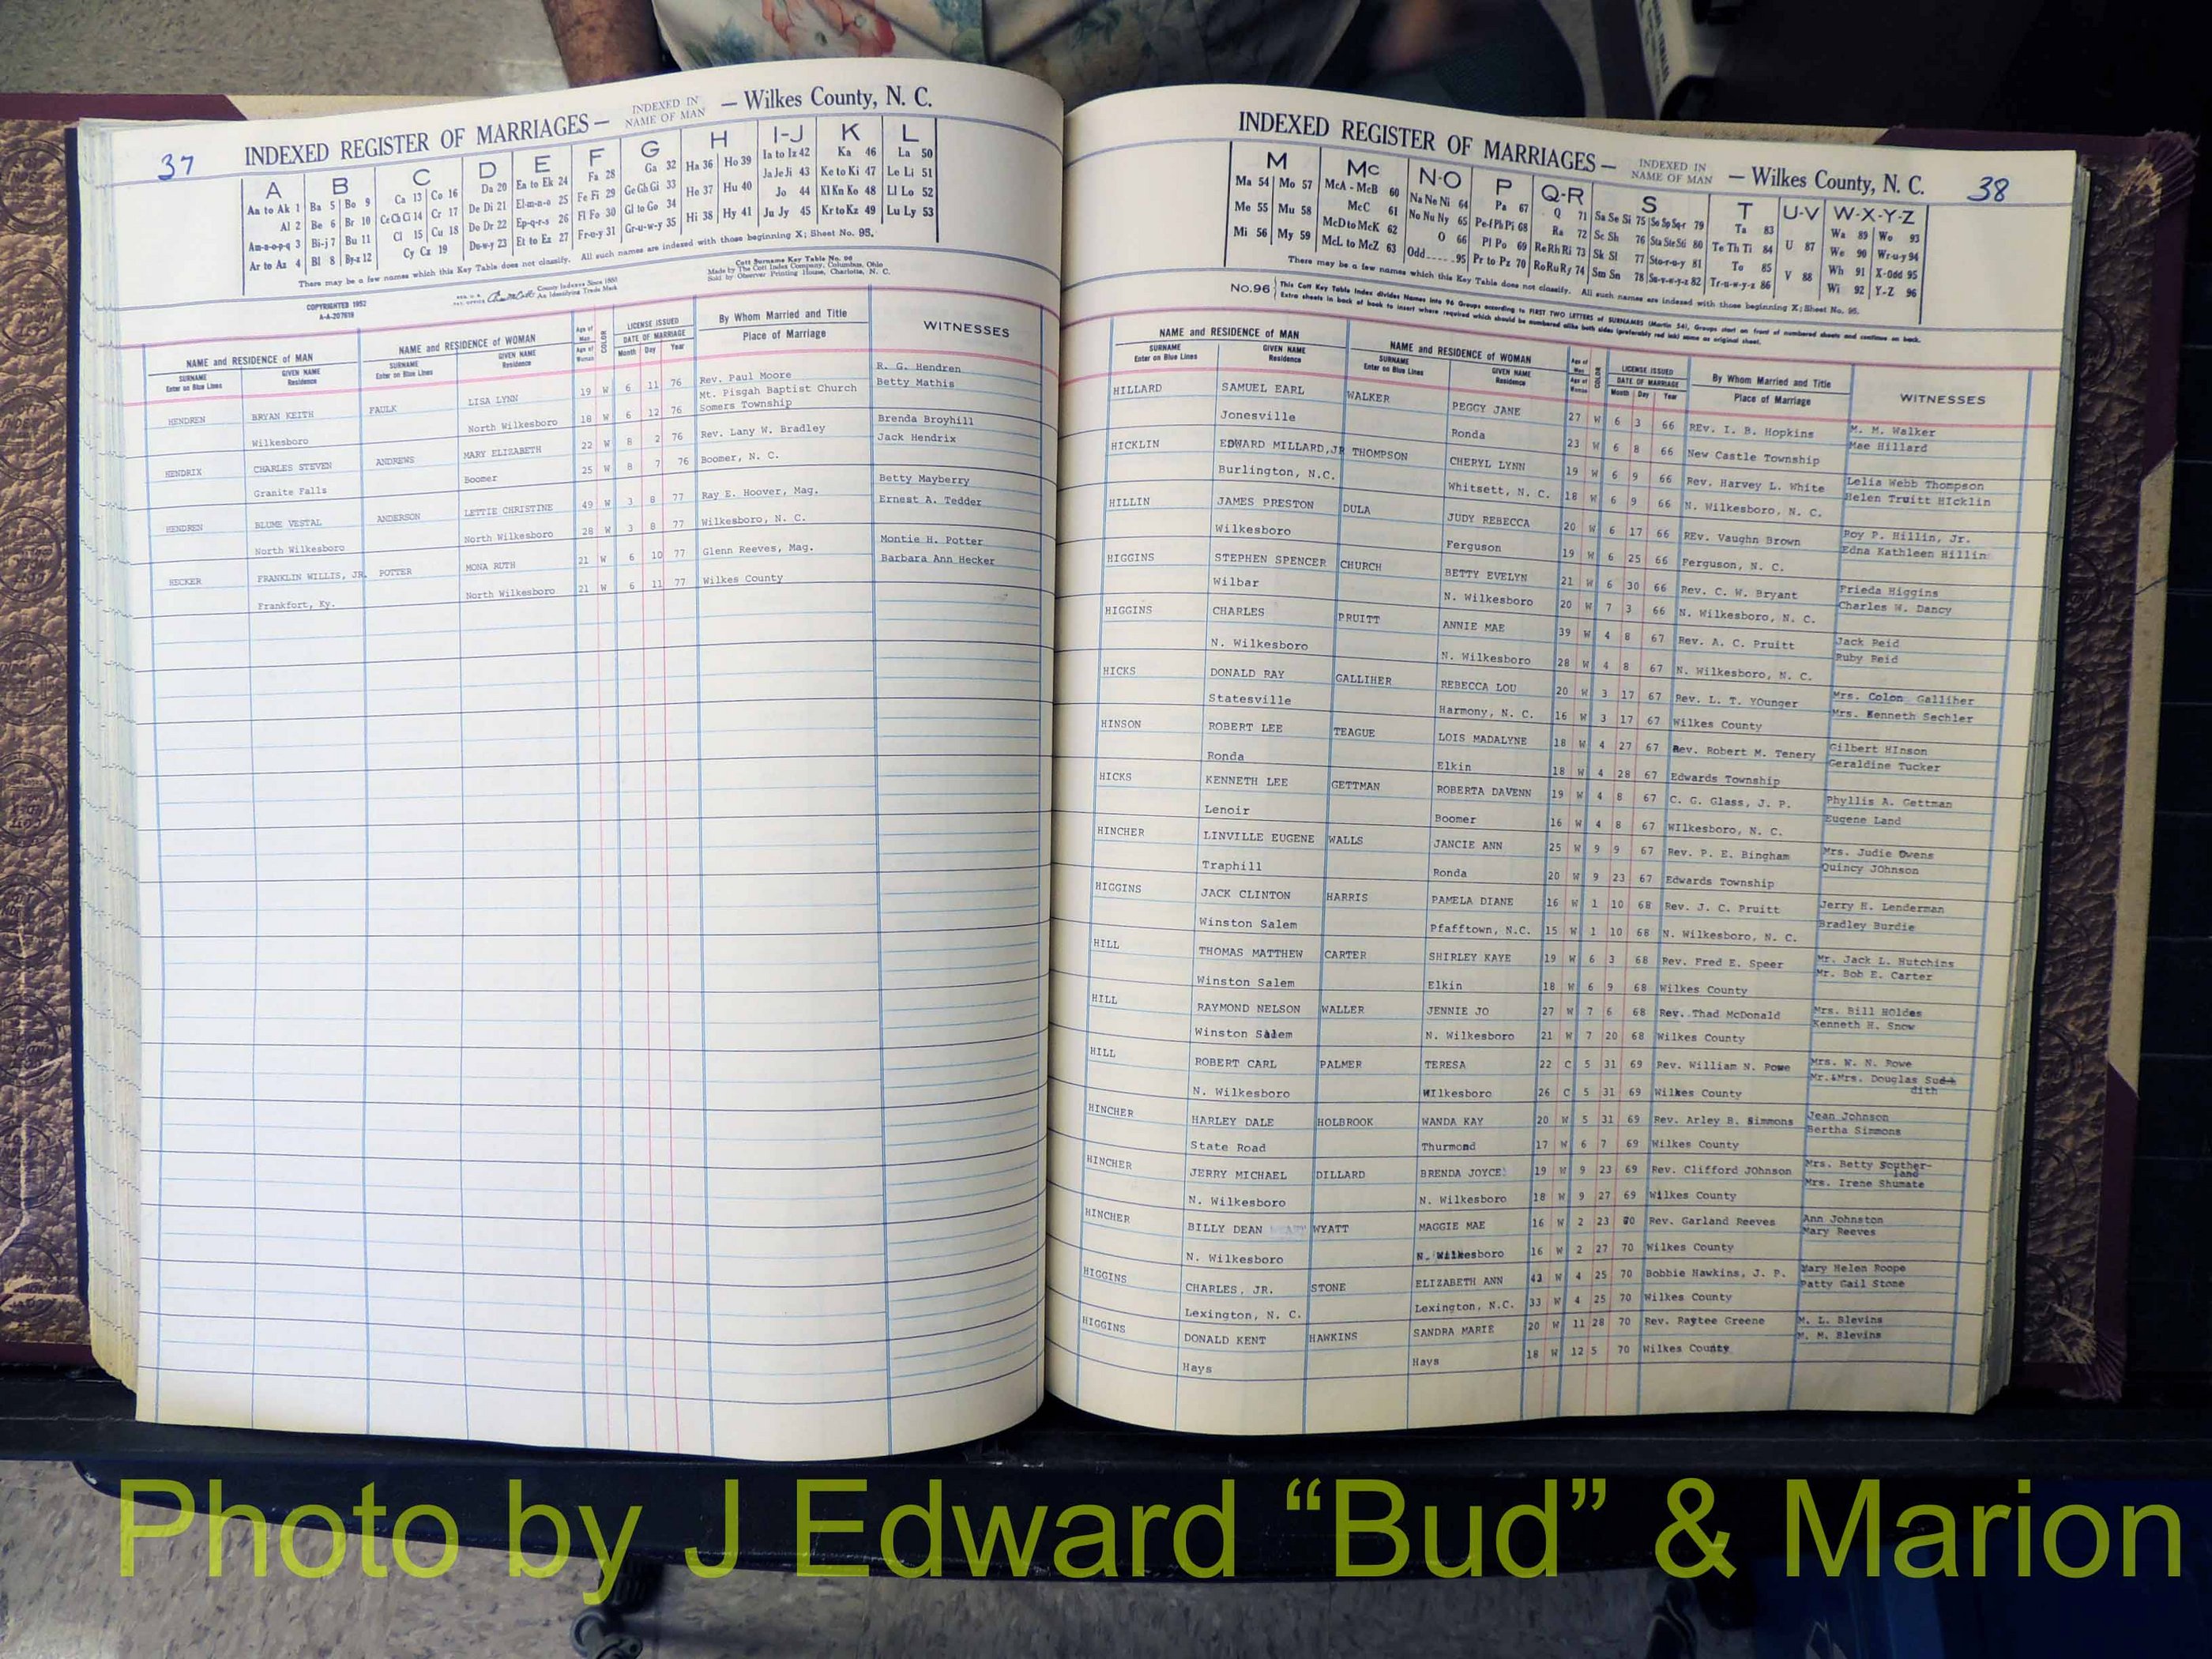 37
INDEXED REGISTER OF MARRIAGES— INDEXED IN NAME OF MAN — Wilkes County, N. C.
A B C D E F G H I-J K L
Aa to Ak 1 Ba 5 Bo 9 Ca 13 Co 16 Da 20 Ea to Ek 24 Fa 28 Ga 32 Ha 36 Ho 39 Ia to Iz 42 Ka 46 La 50
Al 2 Be 6 Br 10 Ce Ch Ci 14 Cr 17 De Di 21 El-m-n-o 25 Fe Fi 29 Ge Gh Gi 33 He 37 Hu 40 Ja Je Ji 43 Ke to Ki 47 Le Li 51
Am-n-o-p-q 3 Bi-j 7 Bu 11 Cl 15 Cu 18 Do Dr 22 Ep-q-r-s 26 Fl Fo 30 Gl to Go 34 Hi 38 Hy 41 Jo 44 Kl Kn Ko 48 Ll Lo 52
Ar to Az 4 Bl 8 By-z 12 Cy Cz 19 Du-w-y 23 Et to Ez 27 Fr-u-y 31 Gr-u-w-y 35 Ju Jy 45 Kr to Kz 49 Lu Ly 53
There may be a few names which this Key Table does not classify. All such names are indexed with those beginning X; Sheet No. 95.
COPYRIGHTED 1952
A-A-207619
County Indexes Since 1888
An Identifying Trade Mark
Cott Surname Key Table No. 96
Made by The Cott Index Company, Columbus, Ohio
Sold by Observer Printing House, Charlotte, N. C.
NAME and RESIDENCE OF MAN NAME and RESIDENCE OF WOMAN Age of Man COLOR LICENSE ISSUED By Whom Married and Title WITNESSES
SURNAME GIVEN NAME SURNAME GIVEN NAME Age of Woman DATE OF MARRIAGE Place of Marriage
Enter on Blue Lines Residence Enter on Blue Lines Residence Month Day Year
HENDREN BRYAN KEITH FAULK LISA LYNN 19 W 6 11 76 Rev. Paul Moore R. G. Hendren
Wilkesboro North Wilkesboro 18 W 6 12 76 Mt. Pisgah Baptist Church Somers Township Betty Mathis
HENDRIX CHARLES STEVEN ANDREWS MARY ELIZABETH 22 W 8 2 76 Rev. Lany W. Bradley Brenda Broyhill
Granite Falls Boomer 25 W 8 7 76 Boomer, N. C. Jack Hendrix
HENDREN BLUME VESTAL ANDERSON LETTIE CHRISTINE 49 W 3 8 77 Ray E. Hoover, Mag. Betty Mayberry
North Wilkesboro North Wilkesboro 28 W 3 8 77 Wilkesboro, N. C. Ernest A. Tedder
HECKER FRANKLIN WILLIS, JR. POTTER MONA RUTH 21 W 6 10 77 Glenn Reeves, Mag. Montie H. Potter
Frankfort, Ky. North Wilkesboro 21 W 6 11 77 Wilkes County Barbara Ann Hecker
INDEXED REGISTER OF MARRIAGES— INDEXED IN NAME OF MAN — Wilkes County, N. C. 38
M Mc N-O P Q-R S T U-V W-X-Y-Z
Ma 54 Mo 57 McA - McB 60 Na Ne Ni 64 Pa 67 Q 71 Sa Se Si 75 So Sp Sq-r 79 Ta 83 U 87 Wa 89 Wo 93
Me 55 Mu 58 McC 61 No Nu Ny 65 Pe-f Ph Pi 68 Ra 72 Sc Sh 76 Sta Ste Sti 80 Te Th Ti 84 V 88 We 90 Wr-u-y 94
Mi 56 My 59 McD to McK 62 O 66 Pl Po 69 Re Rh Ri 73 Sk Sl 77 Sto-r-u-y 81 To 85 Wh 91 X-Odd 95
McL to McZ 63 Odd.....95 Pr to Pz 70 Ro Ru Ry 74 Sm Sn 78 Su-v-w-y-z 82 Tr-u-w-y-z 86 Wi 92 Y-Z 96
There may be a few names which this Key Table does not classify. All such names are indexed with those beginning X; Sheet No. 95.
No.96 This Cott Key Table Index divides Names into 96 Groups according to FIRST TWO LETTERS of SURNAMES (Martin 54). Groups start on front of numbered sheets and continue on back.
Extra sheets in back of book to insert where required which should be numbered alike both sides (preferably red ink) same as original sheet.
NAME and RESIDENCE OF MAN NAME and RESIDENCE OF WOMAN Age of Man COLOR LICENSE ISSUED By Whom Married and Title WITNESSES
SURNAME GIVEN NAME SURNAME GIVEN NAME Age of Woman DATE OF MARRIAGE Place of Marriage
Enter on Blue Lines Residence Enter on Blue Lines Residence Month Day Year
HILLARD SAMUEL EARL WALKER PEGGY JANE 27 W 6 3 66 REv. I. B. Hopkins M. M. Walker
Jonesville Ronda 23 W 6 8 66 New Castle Township Mae Hillard
HICKLIN EDWARD MILLARD,JR THOMPSON CHERYL LYNN 19 W 6 9 66 Rev. Harvey L. White Lelia Webb Thompson
Burlington, N.C. Whitsett, N. C. 18 W 6 9 66 N. Wilkesboro, N. C. Helen Truitt HIcklin
HILLIN JAMES PRESTON DULA JUDY REBECCA 20 W 6 17 66 REv. Vaughn Brown Roy P. Hillin, Jr.
Wilkesboro Ferguson 19 W 6 25 66 Ferguson, N. C. Edna Kathleen Hillin
HIGGINS STEPHEN SPENCER CHURCH BETTY EVELYN 21 W 6 30 66 Rev. C. W. Bryant Frieda Higgins
Wilbar N. Wilkesboro 20 W 7 3 66 N. Wilkesboro, N. C. Charles W. Dancy
HIGGINS CHARLES PRUITT ANNIE MAE 39 W 4 8 67 Rev. A. C. Pruitt Jack Reid
N. Wilkesboro N. Wilkesboro 28 W 4 8 67 N. Wilkesboro, N. C. Ruby Reid
HICKS DONALD RAY GALLIHER REBECCA LOU 20 W 3 17 67 Rev. L. T. YOunger Mrs. Colon Galliher
Statesville Harmony, N. C. 16 W 3 17 67 Wilkes County Mrs. Kenneth Sechler
HINSON ROBERT LEE TEAGUE LOIS MADALYNE 18 W 4 27 67 Rev. Robert M. Tenery Gilbert HInson
Ronda Elkin 18 W 4 28 67 Edwards Township Geraldine Tucker
HICKS KENNETH LEE GETTMAN ROBERTA DAVENN 19 W 4 8 67 C. G. Glass, J. P. Phyllis A. Gettman
Lenoir Boomer 16 W 4 8 67 WIlkesboro, N. C. Eugene Land
HINCHER LINVILLE EUGENE WALLS JANCIE ANN 25 W 9 9 67 Rev. P. E. Bingham Mrs. Judie Owens
Traphill Ronda 20 W 9 23 67 Edwards Township Quincy JOhnson
HIGGINS JACK CLINTON HARRIS PAMELA DIANE 16 W 1 10 68 Rev. J. C. Pruitt Jerry H. Lenderman
Winston Salem Pfafftown, N.C. 15 W 1 10 68 N. Wilkesboro, N. C. Bradley Burdie
HILL THOMAS MATTHEW CARTER SHIRLEY KAYE 19 W 6 3 68 Rev. Fred E. Speer Mr. Jack L. Hutchins
Winston Salem Elkin 18 W 6 9 68 Wilkes County Mr. Bob E. Carter
HILL RAYMOND NELSON WALLER JENNIE JO 27 W 7 6 68 Rev. Thad McDonald Mrs. Bill HOldes
Winston Salem N. Wilkesboro 21 W 7 20 68 Wilkes County Kenneth H. Snow
HILL ROBERT CARL PALMER TERESA 22 C 5 31 69 Rev. William N. Rowe Mrs. W. N. Rowe
N. Wilkesboro WIlkesboro 26 C 5 31 69 Wilkes County Mr.&Mrs. Douglas Suddith
HINCHER HARLEY DALE HOLBROOK WANDA KAY 20 W 5 31 69 Rev. Arley B. Simmons Jean Johnson
State Road Thurmond 17 W 6 7 69 Wilkes County Bertha Simmons
HINCHER JERRY MICHAEL DILLARD BRENDA JOYCE 19 W 9 23 69 Rev. Clifford JOhnson Mrs. Betty Souther-land
N. Wilkesboro N. Wilkesboro 18 W 9 27 69 Wilkes County Mrs. Irene Shumate
HINCHER BILLY DEAN WYATT MAGGIE MAE 16 W 2 23 70 Rev. Garland Reeves Ann Johnston
N. Wilkesboro N. Wilkesboro 16 W 2 27 70 Wilkes County Mary Reeves
HIGGINS CHARLES, JR. STONE ELIZABETH ANN 43 W 4 25 70 Bobbie Hawkins, J. P. Mary Helen Roope
Lexington, N. C. Lexington, N.C. 33 W 4 25 70 Wilkes County Patty Gail Stone
HIGGINS DONALD KENT HAWKINS SANDRA MARIE 20 W 11 28 70 Rev. Raytee Greene M. L. Blevins
Hays Hays 18 W 12 5 70 Wilkes County M. M. Blevins
Photo by J Edward “Bud” & Marion